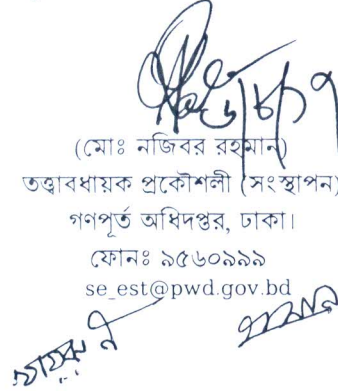 (মোঃ নজিবর রহমান)
তত্ত্বাবধায়ক প্রকৌশলী (সংস্থাপন)
গণপূর্ত অধিদপ্তর, ঢাকা।
ফোনঃ ৯৫৬০৯৯৯
se_est@pwd.gov.bd